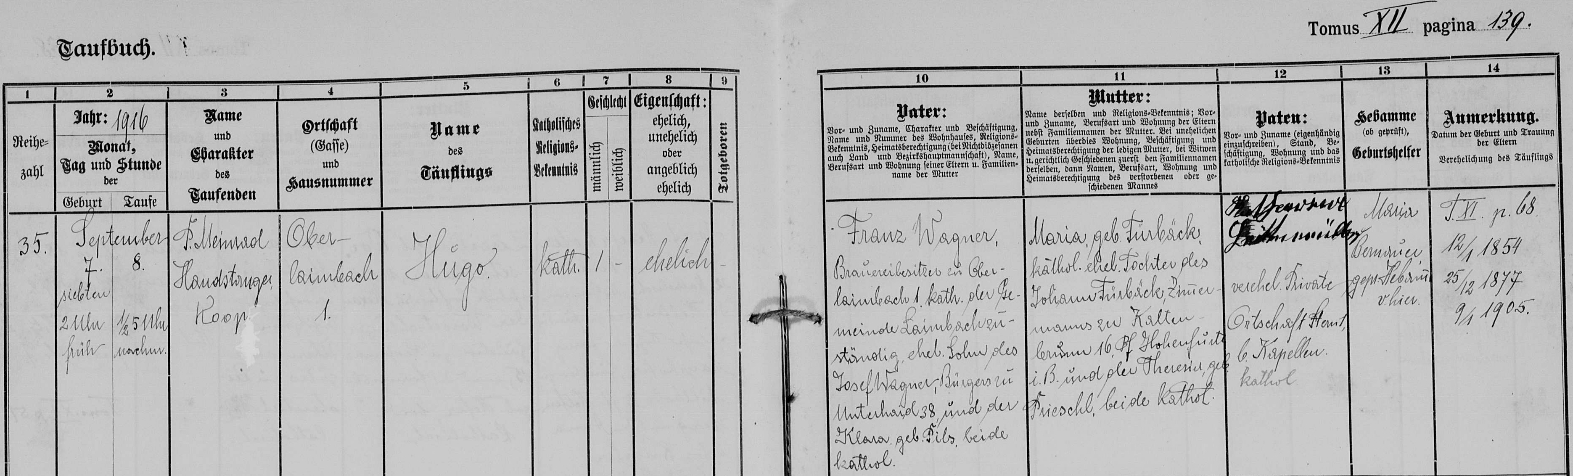 Tomus XII pagina 139.
Taufbuch.
1
2
3
4
5
6
7
8
9
Reihe-
zahl
Jahr: 1916
Monat,
Tag und Stunde
der
Geburt
Taufe
Name
und
Charakter
des
Taufenden
Ortschaft
(Gasse)
und
Hausnummer
Name
des
Täuflings
Katholisches
Religions-
Bekenntnis
Geschlecht
männlich
weiblich
Eigenschaft:
ehelich,
unehelich
oder
angeblich
ehelich
Totgeboren
35.
September
7. 8.
siebten
2 Uhr
früh
1/2 5 Uhr
nachm.
P. Meinrad
Koop
Ober-
laimbach
1.
Hugo
kath.
1
-
ehelich
-
10
11
12
13
14
Vater:
Vor- und Zuname, Charakter und Beschäftigung,
Name und Nummer des Wohnhauses, Religions-
Bekenntnis, Heimatsberechtigung (bei Nichtdiözesanen
auch Land und Bezirkshauptmannschaft), Name,
Berufsart und Wohnung seiner Eltern u. Familien-
name der Mutter
Mutter:
Name derselben und Religions-Bekenntnis; Vor-
und Zuname, Berufsart und Wohnung der Eltern
nebst Familiennamen der Mutter. Bei unehelichen
Geburten überdies Wohnung, Beschäftigung und
Heimatsberechtigung der ledigen Mutter, bei Witwen
u. gerichtlich Geschiedenen zuerst den Familiennamen
derselben, dann Namen, Berufsart, Wohnung und
Heimatsberechtigung des verstorbenen oder ge-
schiedenen Mannes
Paten:
Vor- und Zuname (eigenhändig
einzuschreiben), Stand, Be-
schäftigung, Wohnung und das
katholische Religions-Bekenntnis
Hebamme
(ob geprüft),
oder
Geburtshelfer
Anmerkung.
Datum der Geburt und Trauung
der Eltern
Verehelichung des Täuflings
Franz Wagner,
Brauereibesitzer zu Ober-
laimbach 1, kath. der Ge-
meinde Laimbach zu-
ständig, ehel. Sohn des
Josef Wagner, Bürgers zu
Unterhaid 38 und der
Klara geb. Pils, beide
kathol.
Maria, geb. Fürbäck,
kathol. ehel. Tochter des
Johann Fürbäck, Zimer-
manns zu Kalten-
brunn 16, Pf. Hohenfurth
i. B. und der Theresia, geb.
Prieschl, beide kathol.
verehel. Private
Ortschaft
b. Kapellen.
kathol.
Maria
gepr. Hebame
v. hier.
T. XI. p. 68.
12/1 1854
25/12 1877
9/1 1905.